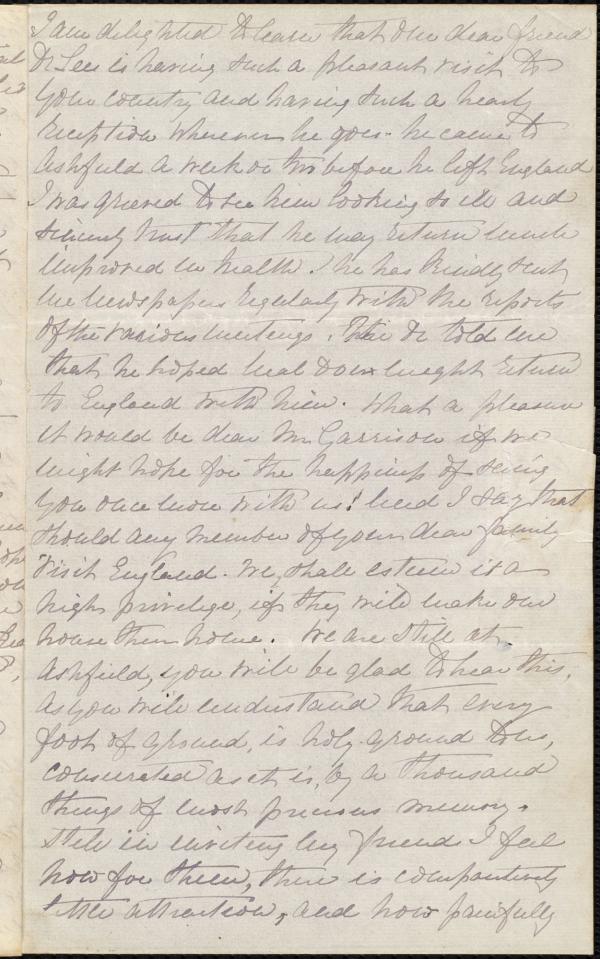 I am delighted to learn that our dear friend
Dr Lees is having such a pleasant visit to
your country and having such a hearty
reception wherever he goes. he came to
Ashfield a week or two before he left England
I was grieved to see him looking so ill and
sincerely trust that he may return much
improved in health. he has kindly sent
me newspapers regularly with the reports
of the various meetings. The Dr told me
that he hoped Neal Dow might return
to England with him. What a pleasure
it would be dear Mr Garrison if we
might hope for the happiness of seeing
you once more with us! need I say that
should any member of your dear family
visit England. We, shall esteem it a
high privilege, if they will make our
house their home. We are still at
Ashfield, you will be glad to hear this,
as you will understand that every
foot of ground, is holy ground to us,
consecrated as it is, by a thousand
things of most precious memory.
Still in inviting my friends I feel
now for them, there is comparatively
little attraction, and how painfully